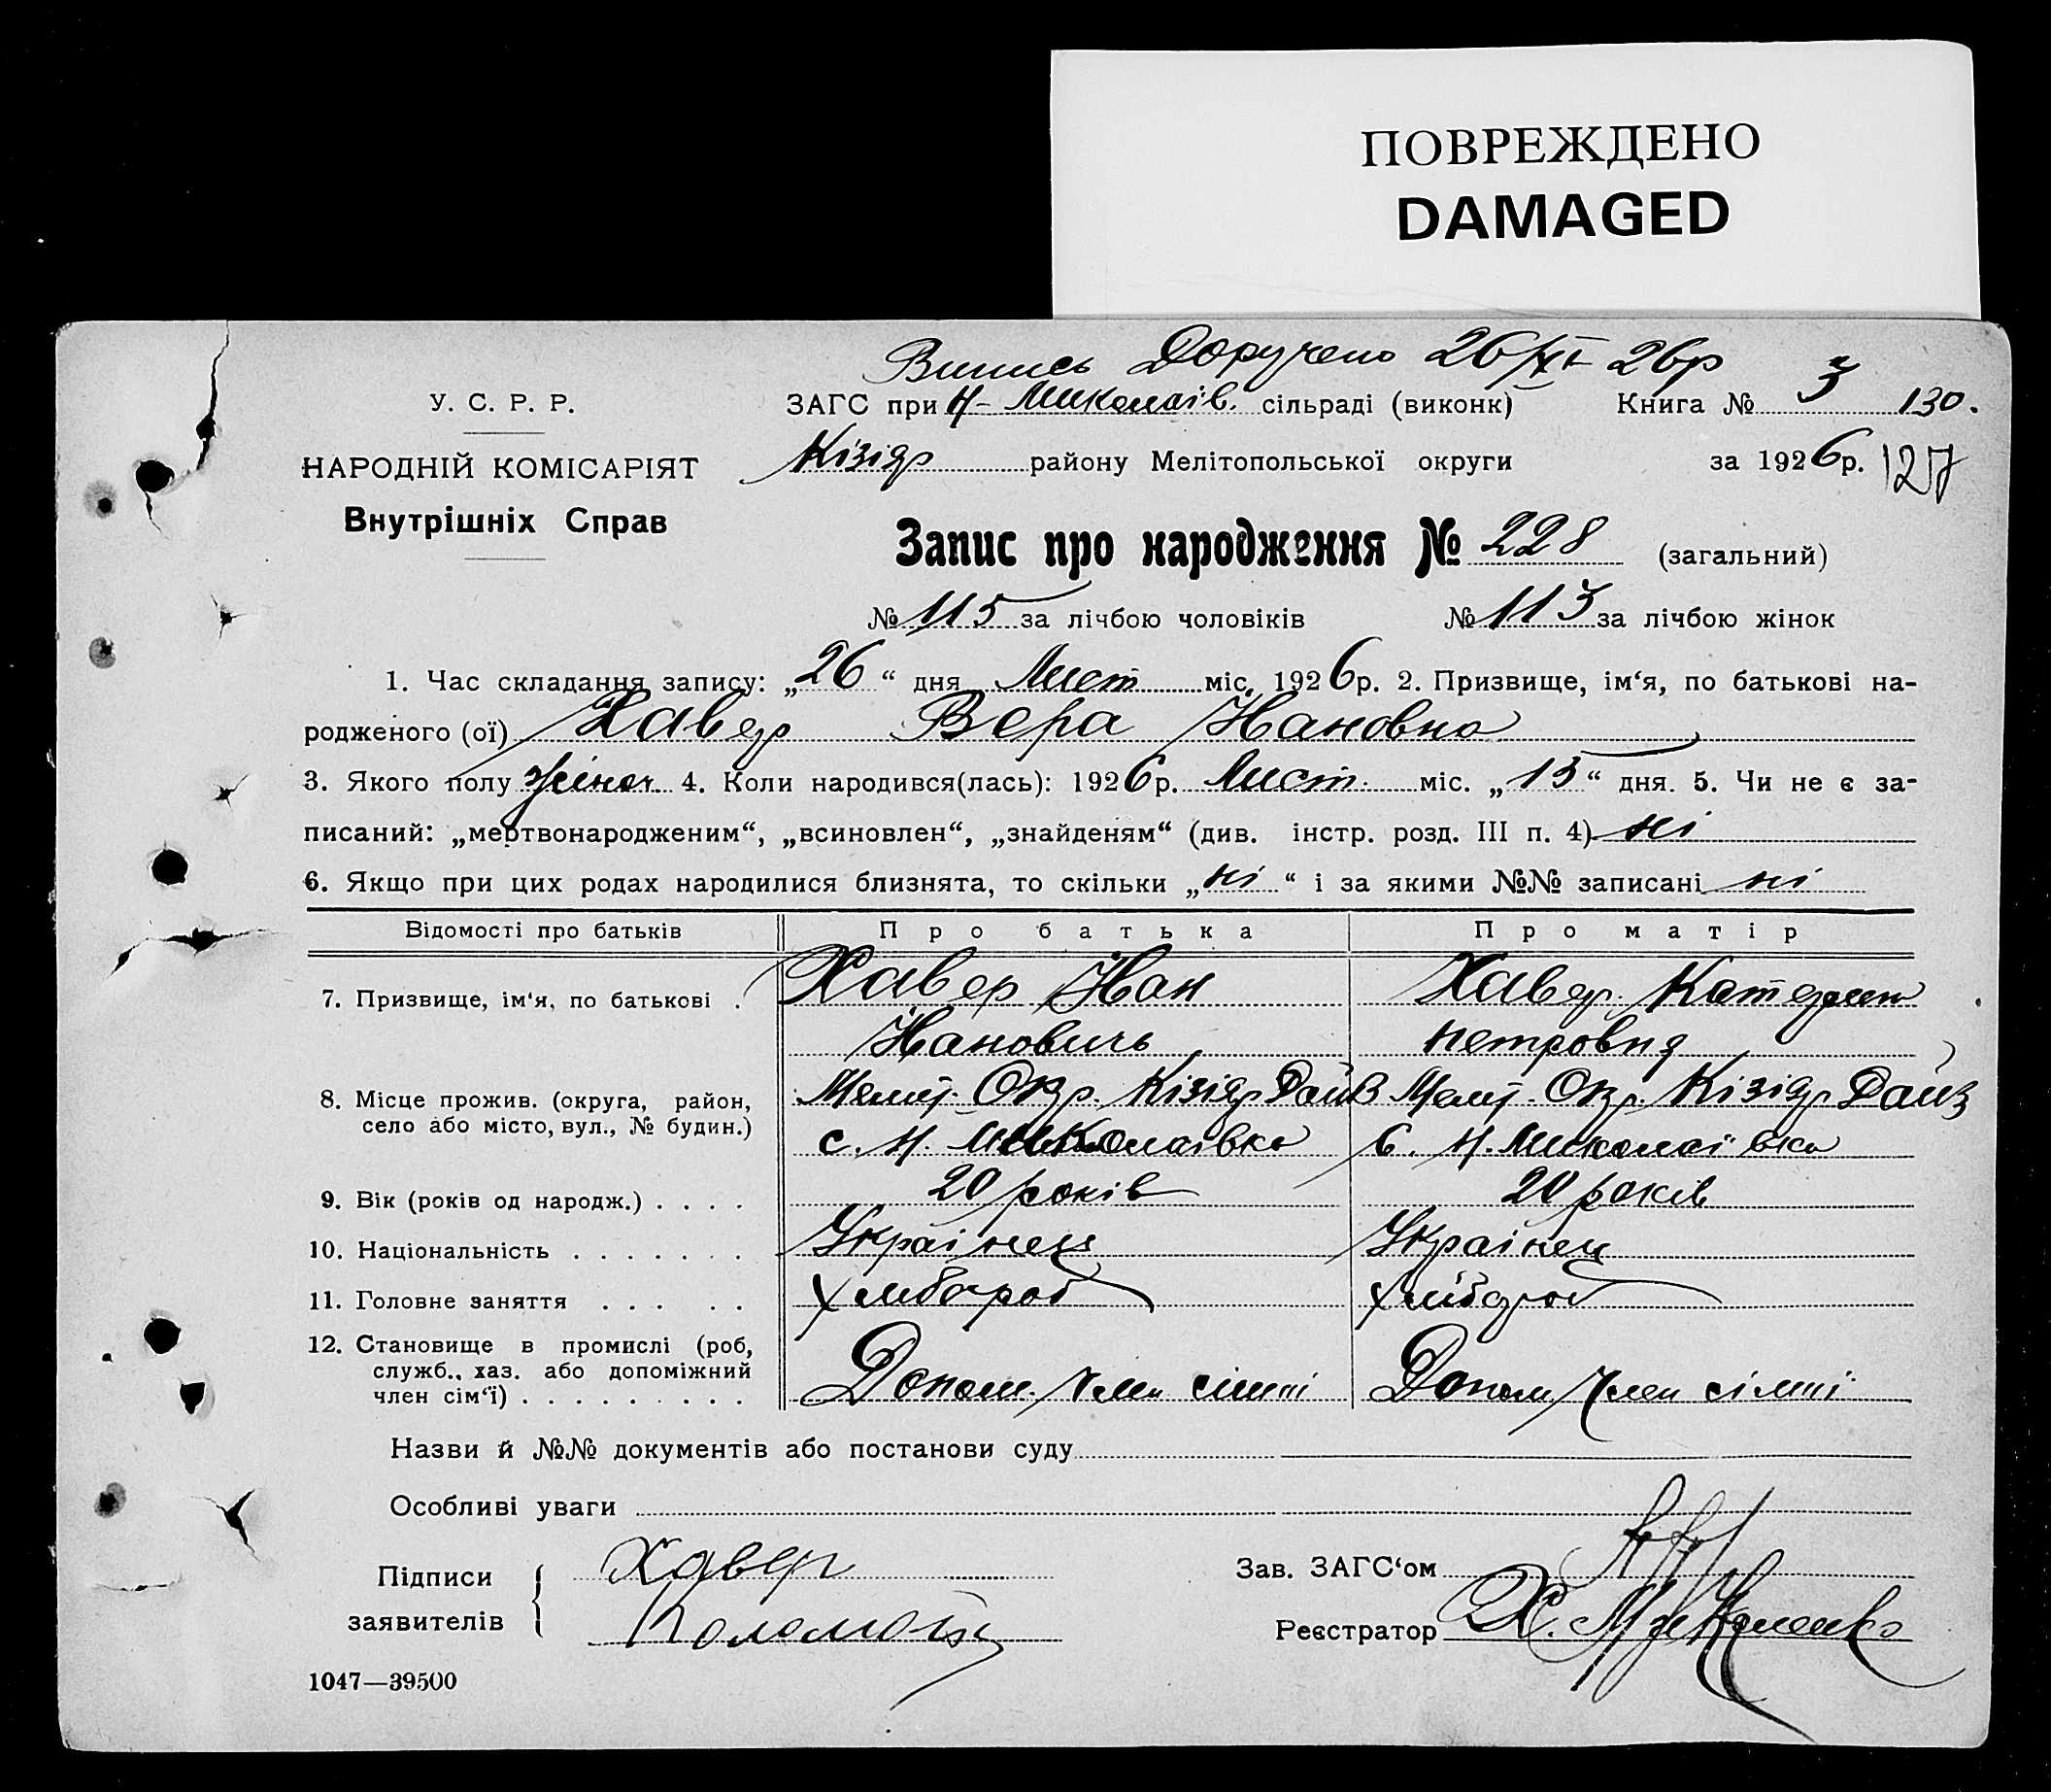 ПОВРЕЖДЕНО
DAMAGED
Випись Доручено 26/XI 26р
У. С. Р. Р.
ЗАГС при Н-Миколаїв. сільраді (виконк) Книга № 3 130.
НАРОДНІЙ КОМІСАРІЯТ
Кізіяр району Мелітопольської округи за 1926р. 127
Внутрішніх Справ
Запис про народження № 228 (загальний)
№ 115 за лічбою чоловіків № 113 за лічбою жінок
1. Час складання запису: „26“ дня Лист міс. 1926р. 2. Призвище, ім‘я, по батькові на-
родженого (ої) Хавер Вера Ивановна
3. Якого полу жіноч 4. Коли народився(лась): 1926р. Лист. міс. „15“ дня. 5. Чи не є за-
писаний: „мертвонародженим“, „всиновлен“, „знайденям“ (див. інстр. розд. III п. 4) ні
6. Якщо при цих родах народилися близнята, то скільки „ні“ і за якими №№ записані ні
Відомості про батьків Про батька Про матір
7. Призвище, ім‘я, по батькові . Хавер Иван Хавер Катерина
Иванович петровна
8. Місце прожив. (округа, район, Меліт. Окр. Кізіяр Меліт. Окр. Кізіяр
село або місто, вул., № будин.) с. Н. Миколаївка с. Н. Миколаївка
9. Вік (років од народж.) . . . . 20 років 20 років
10. Національність . . . . . . . Українец Українец
11. Головне заняття . . . . . хлібороб хлібороб
12. Становище в промислі (роб, служб., хаз. або допоміжний член сім‘ї) . . . . . . . . . Допом. член сімї Допом член сімї
Назви й №№ документів або постанови суду
Особливі уваги
Підписи заявителів Хавер
Зав. ЗАГС‘ом
Реєстратор
1047—39500